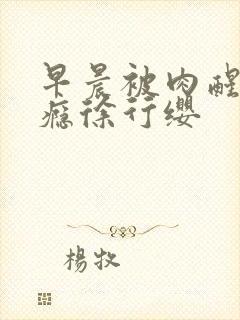 早晨被肉醒
瘾徐行缨
楊牧